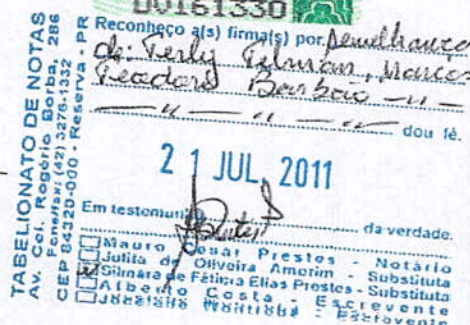 DV161330
TABELIONATO DE NOTAS
Av. Cel. Rogério Borba, 286
Fone/fax: (42) 3276-1332
CEP 84320-000 - Reserva - PR
Reconheço a(s) firma(s) por Semelhança
de: Terly Marcos
Teodoro
dou fé.
21 JUL. 2011
Em testemunho da verdade.
Mauro Cesar Prestes - Notário
Julita de Oliveira Amorim - Substituta
Silmara de Fátima Elias Prestes - Substituta
Alberto Costa - Escrevente
- Escrevente